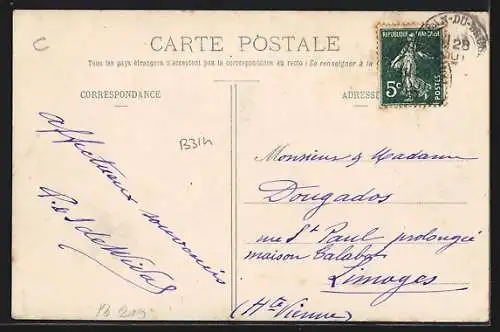 CARTE POSTALE
Tous les pays étrangers n'acceptent pas la correspondance au recto (Se renseigner à la
CORRESPONDANCE
ADRESSE
REPUBLIQUE FRANÇAISE
5c
POSTES
28
C
B314
affectueux souvenirs
Monsieur & Madame
Dougados
rue St Paul prolongée
maison Calabot
Limoges
(Hte Vienne)